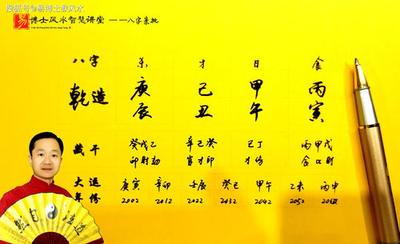 搜狐号@易博士说风水
易 博士风水智慧讲堂 ——八字亲批
八字 杀 才 日 食
乾造 庚 己 甲 丙
辰 丑 午 寅
藏干 癸戊乙 辛己癸 己丁 丙甲戊
印财劫 官才印 才伤 食比财
大运 庚寅 辛卯 壬辰 癸巳 甲午 乙未 丙申
年份 2002 2012 2022 2032 2042 2052 2062